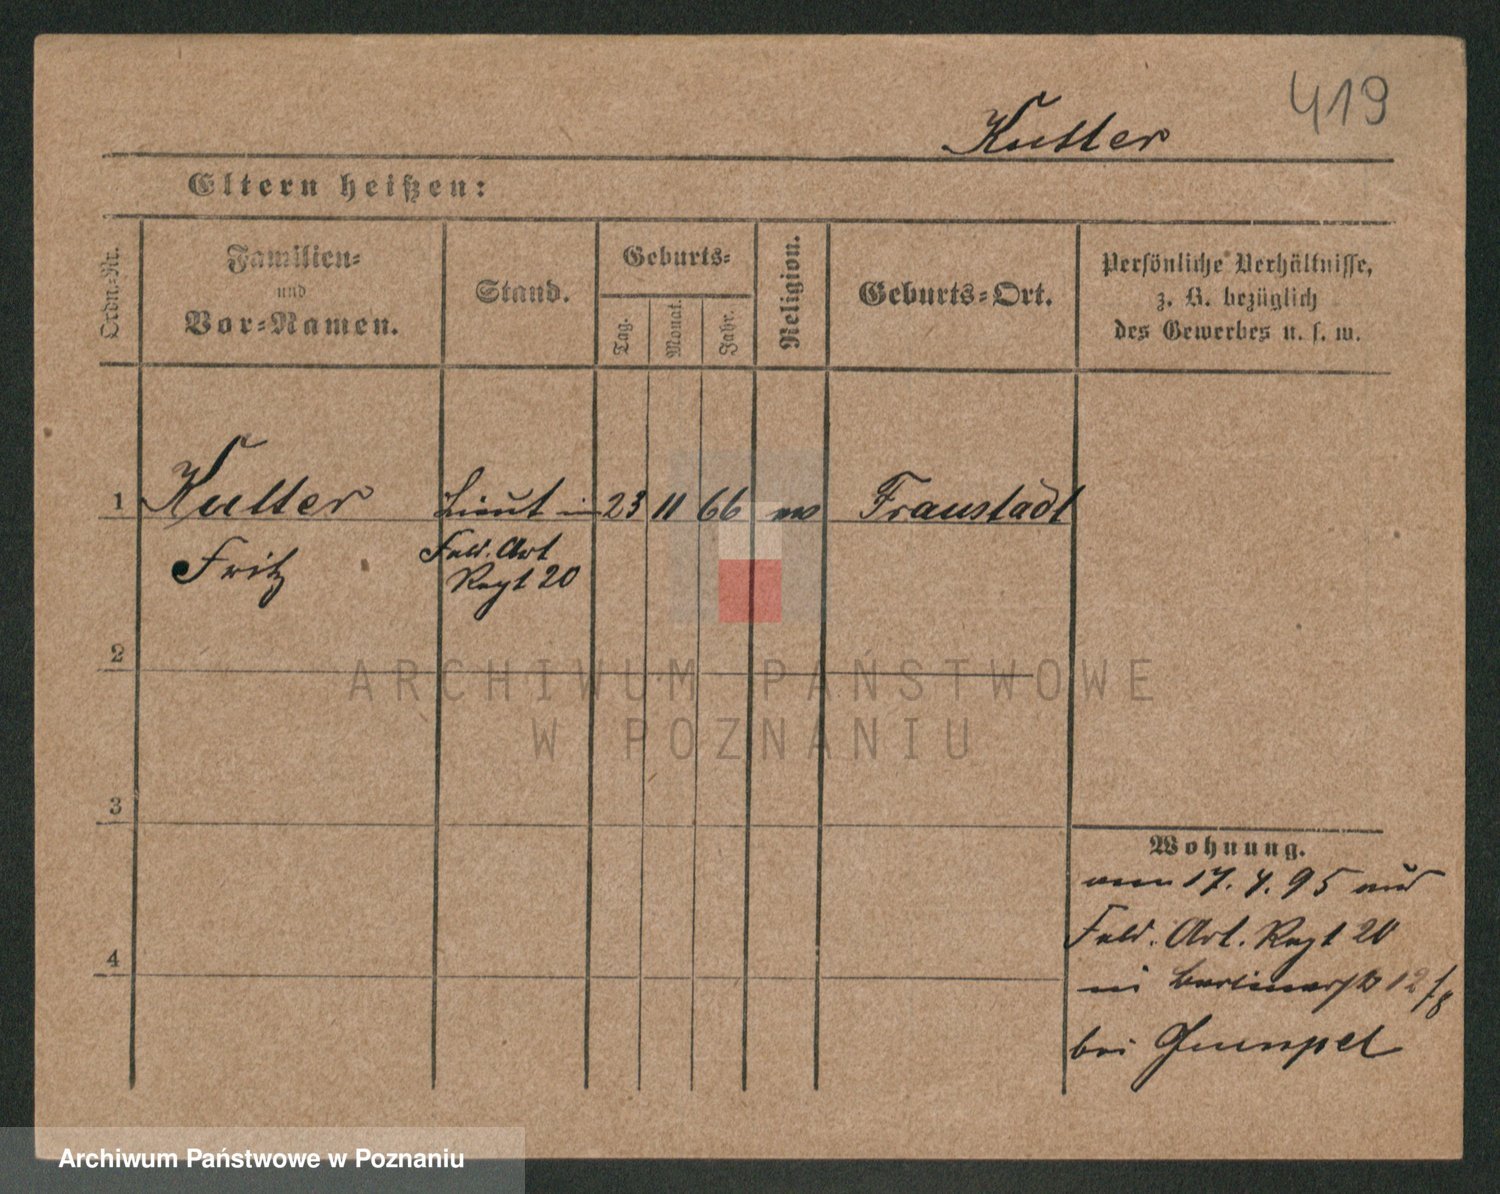 419
Kutter
Eltern heißen:
Ordn.-Nr.
Familien-
und
Vor-Namen.
Stand.
Geburts-
Tag.
Monat.
Jahr.
Religion.
Geburts-Ort.
Persönliche Verhältnisse,
z. B. bezüglich
des Gewerbes u. s. w.
1 Kutter Lieut in 23 11 66 ev Fraustadt
Fritz Feld. Art
Regt 20
2
ARCHIWUM PAŃSTWOWE
W POZNANIU
3
Wohnung.
17. 4. 95
Feld. Art. Regt 20
4
in Berlinerstr 12/8
bei Gumpel
Archiwum Państwowe w Poznaniu